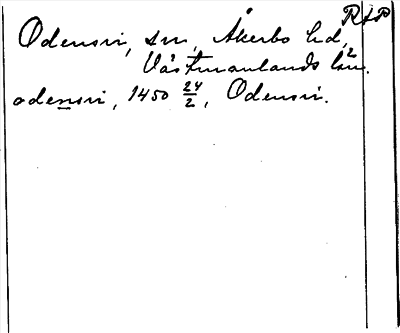 RAP
Odensvi, sn, Åkerbo hd,
Västmanlands län.
odensvi, 1450 24/2, Odensvi.